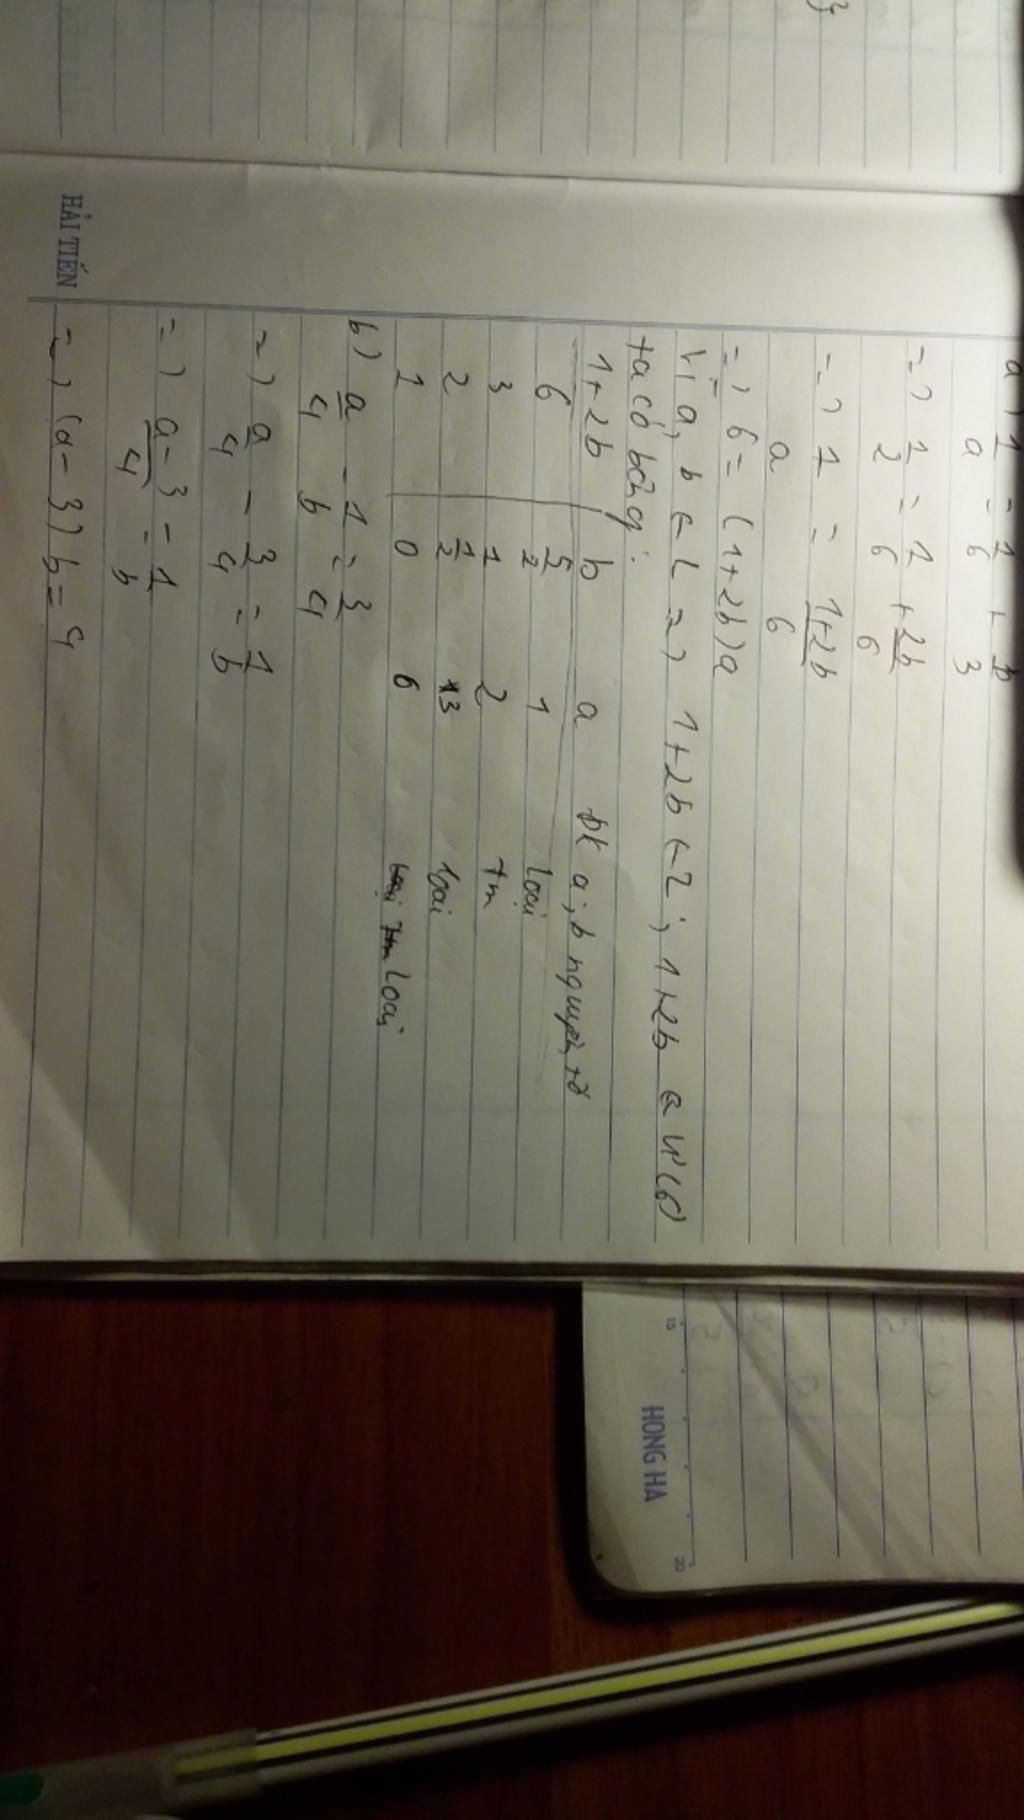 a) 1/a = 1/6 + b/3
=) 1/2 = 1/6 + 2b/6
=) 1/a = 1+2b/6
=) 6 = (1+2b)a
Vì a, b ∈ Z =) 1+2b ∈ Z ; 1+2b ∈ Ư(6)
ta có bảng:
1+2b b a Đk a; b nguyên, td
6 5/2 1 loại
3 1 2 tm
2 1/2 3 loại
1 0 6 loại
b) a/4 - 1/b = 3/4
=) a/4 - 3/4 = 1/b
=) a-3/4 = 1/b
=) (a-3)b = 4
HẢI TIẾN
15
20
HONG HA